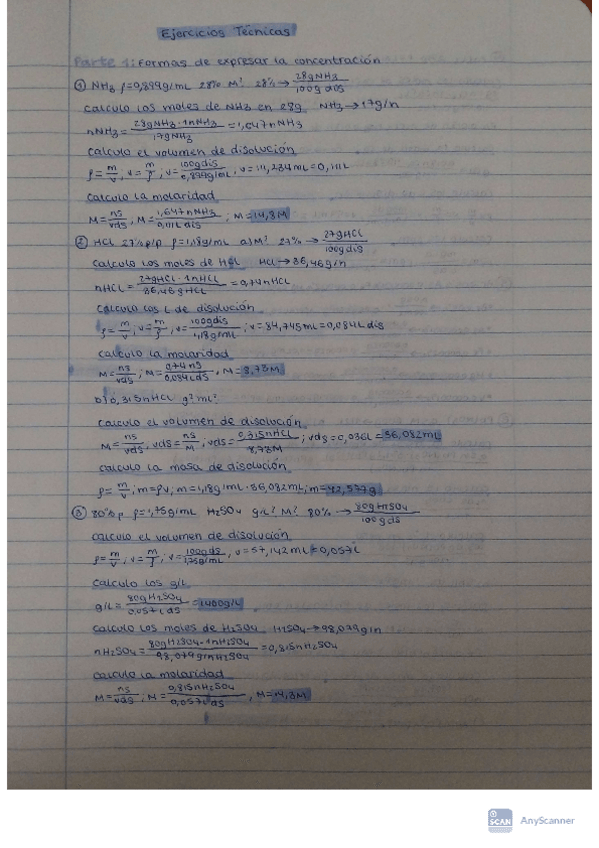 Ejercicios Técnicas
Parte 1: Formas de expresar la concentración
① NH3 ρ=0,899g/mL 28% M? 28% → 28gNH3/100g dis
Calculo los moles de NH3 en 28g NH3 → 17g/n
nNH3 = 28gNH3·1nNH3/17gNH3 = 1,647nNH3
Calculo el volumen de disolución
ρ=m/v, v=m/ρ, v=100gdis/0,899g/mL; v=111,234mL=0,111L
Calculo la molaridad
M=ns/vds; M=1,647nNH3/0,111L dis; M=14,8M
② HCl 27%p/p ρ=1,18g/mL a) M? 27% → 27gHCl/100gdis
Calculo los moles de HCl HCl → 36,46g/n
nHCl = 27gHCl·1nHCl/36,46gHCl = 0,74nHCl
Calculo los L de disolución
ρ=m/v; v=m/ρ; v=100gdis/1,18g/mL; v=84,745mL=0,084L dis
Calculo la molaridad
M=ns/vds; M=0,74ns/0,084LdS, M=8,73M
b) 0,315nHCl g? mL?
Calculo el volumen de disolución
M=ns/vds, vds=ns/M; vds=0,315nHCl/8,73M; vds=0,036L=36,082mL
Calculo la masa de disolución
ρ=m/v; m=ρv; m=1,18g/mL·36,082mL; m=42,577g
③ 80%p ρ=1,75g/mL H2SO4 g/L? M? 80% → 80gH2SO4/100gds
Calculo el volumen de disolución
ρ=m/v; v=m/ρ; v=100gds/1,75g/mL, v=57,142mL=0,057L
Calculo los g/L
g/L=80gH2SO4/0,057L ds=1400g/L
Calculo los moles de H2SO4 H2SO4→98,079g/n
nH2SO4=80gH2SO4·1nH2SO4/98,079g/nH2SO4=0,815nH2SO4
Calculo la molaridad
M=ns/vds; M=0,815nH2SO4/0,057LdS, M=14,3M
SCAN AnyScanner